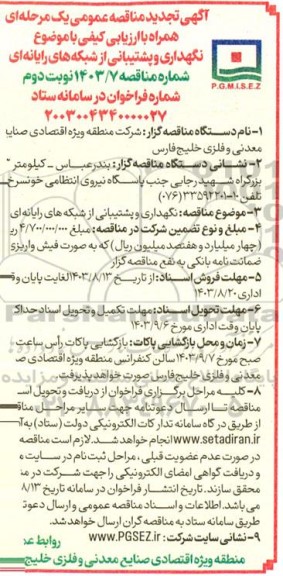 آگهی تجدید مناقصه عمومی یک مرحله‌ای
همراه با ارزیابی کیفی با موضوع
نگهداری و پشتیبانی از شبکه‌های رایانه‌ای
شماره مناقصه ۱۴۰۳/۷ نوبت دوم
شماره فراخوان در سامانه ستاد
۲۰۰۳۰۰۴۳۴۰۰۰۰۰۲۷
P.G.M.I.S.E.Z
۱- نام دستگاه مناقصه گزار: شرکت منطقه ویژه اقتصادی صنایع
معدنی و فلزی خلیج فارس
۲- نشانی دستگاه مناقصه گزار: بندرعباس - کیلومتر
بزرگراه شهید رجایی جنب پاسگاه نیروی انتظامی خونسرخ
تلفن ۱۰-۳۳۵۹۲۲۰۱ (۰۷۶)
۳- موضوع مناقصه: نگهداری و پشتیبانی از شبکه های رایانه ای
۴- مبلغ و نوع تضمین شرکت در مناقصه: مبلغ ۴/۷۰۰/۰۰۰/۰۰۰ ری
(چهار میلیارد و هفتصد میلیون ریال) که به صورت فیش واریزی
ضمانت نامه بانکی به نفع مناقصه گزار
۵- مهلت فروش اسناد: از تاریخ ۱۴۰۳/۸/۱۳ لغایت پایان وق
اداری ۱۴۰۳/۸/۲۰
۶- مهلت تحویل اسناد: مهلت تکمیل و تحویل اسناد حداک
پایان وقت اداری مورخ ۱۴۰۳/۹/۶
۷- زمان و محل بازگشایی پاکات: بازگشایی پاکات رأس ساعت
صبح مورخ ۱۴۰۳/۹/۷ سالن کنفرانس منطقه ویژه اقتصادی ص
معدنی و فلزی خلیج فارس صورت خواهد پذیرفت.
۸- کلیه مراحل برگزاری فراخوان از دریافت و تحویل اس
مناقصه تا ارسال دعوتنامه جهت سایر مراحل مناق
از طریق درگاه سامانه تدارکات الکترونیکی دولت (ستاد) به آ
www.setadiran.ir انجام خواهد شد. لازم است مناقصه
در صورت عدم عضویت قبلی، مراحل ثبت نام در سایت م
و دریافت گواهی امضای الکترونیکی را جهت شرکت در من
محقق سازند. تاریخ انتشار فراخوان در سامانه تاریخ ۸/۱۳
می باشد. اطلاعات و اسناد مناقصه عمومی و ارسال دعوت
طریق سامانه ستاد به مناقصه گران ارسال خواهد شد.
۹- نشانی سایت شرکت: www.PGSEZ.ir
روابط عم
منطقه ویژه اقتصادی صنایع معدنی و فلزی خلیج